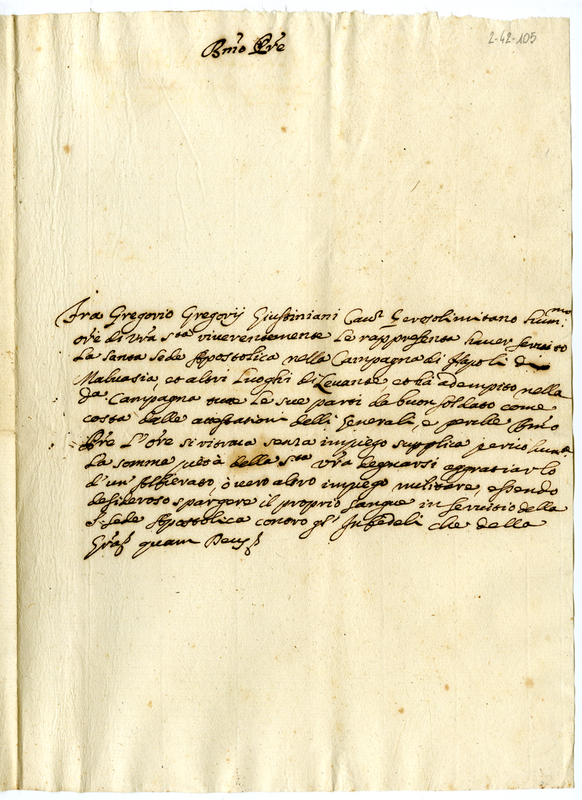 Bmo Pre
2-42-105
Fra Gregorio Gregorij Giustiniani Cavr Gerosolimitano hummo
ore di Vra Sta riverentemente le rappresenta haver servito
la Santa Sede Apostolica nella Campagna di Napoli di
Malvasia, et altri Luoghi di Levante et hà adempito nella
da Campagna tutte le sue parti da buon soldato come
costa dalle attestationi delli Generali, e perche Bmo
Pre l'ore si ritrova senza impiego supplica perciò humte
la somma pietà della Sta Vra degnarsi aggratiarlo
d'un Alfierato, ò vero altro impiego militare, essendo
desideroso spargere il proprio sangue in servitio della
S. Sede Apostolica contro gl' Infedeli che della
Gra quam Deus